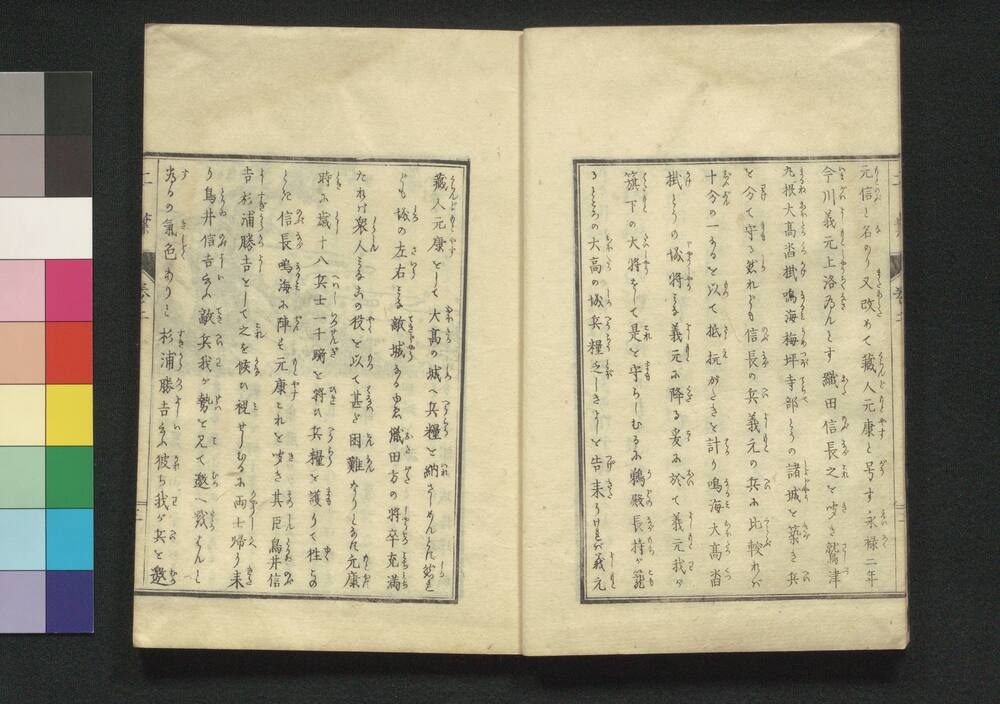 元信と名のり又改めて藏人元康と号す永禄二年
今川義元上洛なんとす織田信長之を聞き鷲津
丸根大髙沓掛鳴海梅坪寺部とうの諸城を築き兵
を分て守る然れども信長の兵義元の兵に比較れバ
十分の一なるを以て抵抗がたきを計り鳴海大髙沓
掛とうの城将みな義元に降る爰に於て義元我が
籏下の大将をして是を守らしむるに鵜殿長持が籠
るところの大高の城兵糧乏しきよしを告来りけれバ義元
藏人元康をして大髙の城へ兵糧を納さしめんとす然れ
ども城の左右みな敵城なる由織田方の将卒充滿
たれば衆人みな此の役を以て甚だ困難なりとなす元康
時に歳十八兵士一千騎を将ひ兵糧を護りて往
とき信長鳴海に陣す元康これを聞き其臣鳥井信
吉杉浦勝吉をして之を候ひ視せしむるに両士帰り来
り鳥井信吉云ふ敵兵我が勢を見て邀へ戦はんと
するの氣色ありと杉浦勝吉云ふ彼ら我が兵を邀